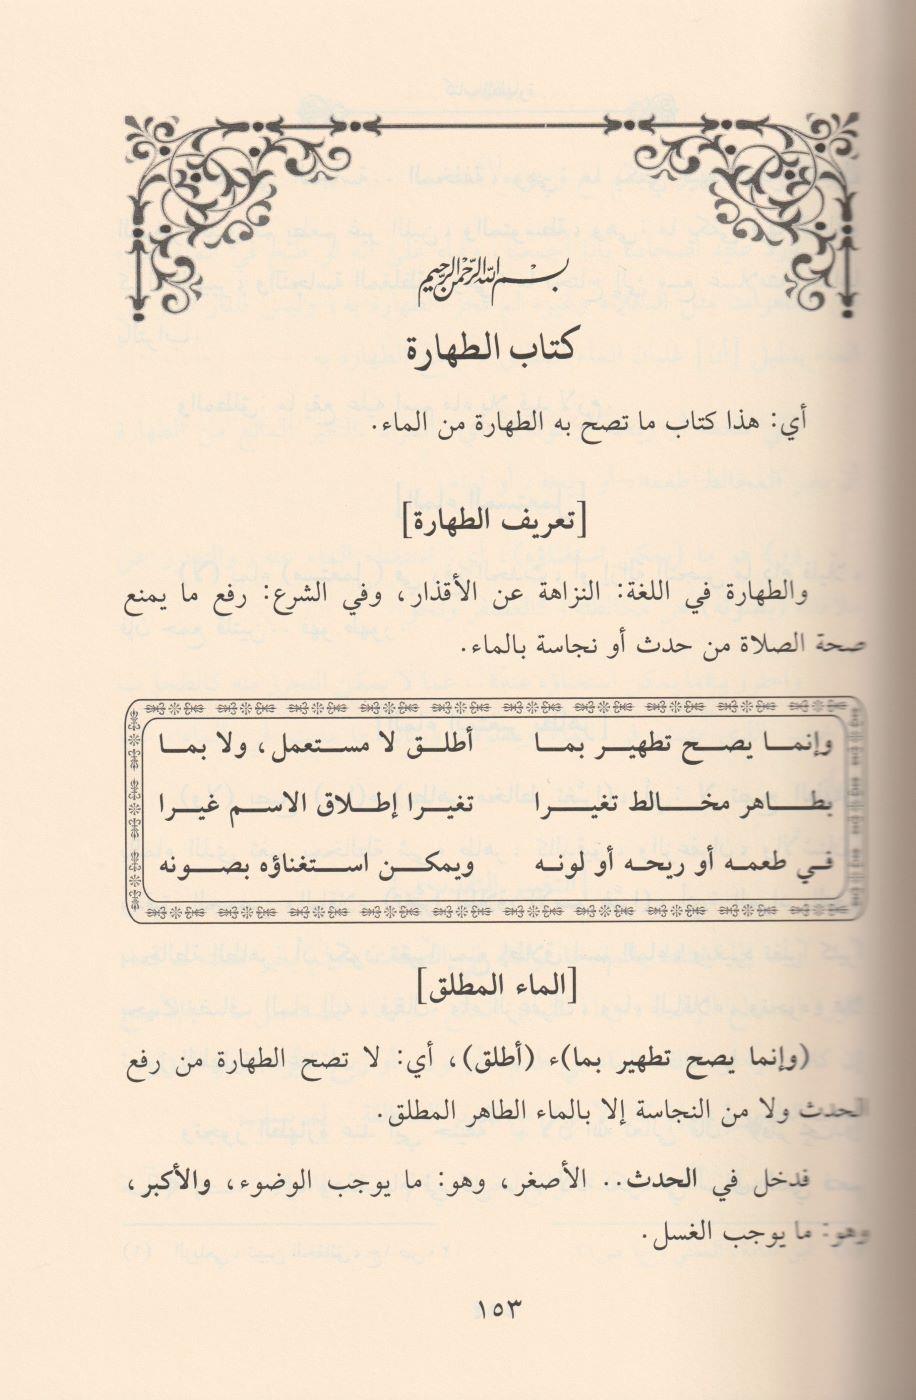 بسم الله الرحمن الرحيم
كتاب الطهارة
أي: هذا كتاب ما تصح به الطهارة من الماء.
[تعريف الطهارة]
والطهارة في اللغة: النزاهة عن الأقذار، وفي الشرع: رفع ما يمنع
صحة الصلاة من حدث أو نجاسة بالماء.
وإنمـا يصـح تطهيـر بمـا أطلـق لا مسـتعمل، ولا بمـا
بطـاهر مخـالط تغيـرا تغيـرا إطـلاق الاسـم غيـرا
فـي طعمـه أو ريحـه أو لونـه ويمكـن اسـتغناؤه بصـونه
[الماء المطلق]
(وإنما يصح تطهير بما)ء (أطلق)، أي: لا تصح الطهارة من رفع
الحدث ولا من النجاسة إلا بالماء الطاهر المطلق.
فدخل في الحدث.. الأصغر، وهو: ما يوجب الوضوء، والأكبر،
وهو: ما يوجب الغسل.
١٥٣